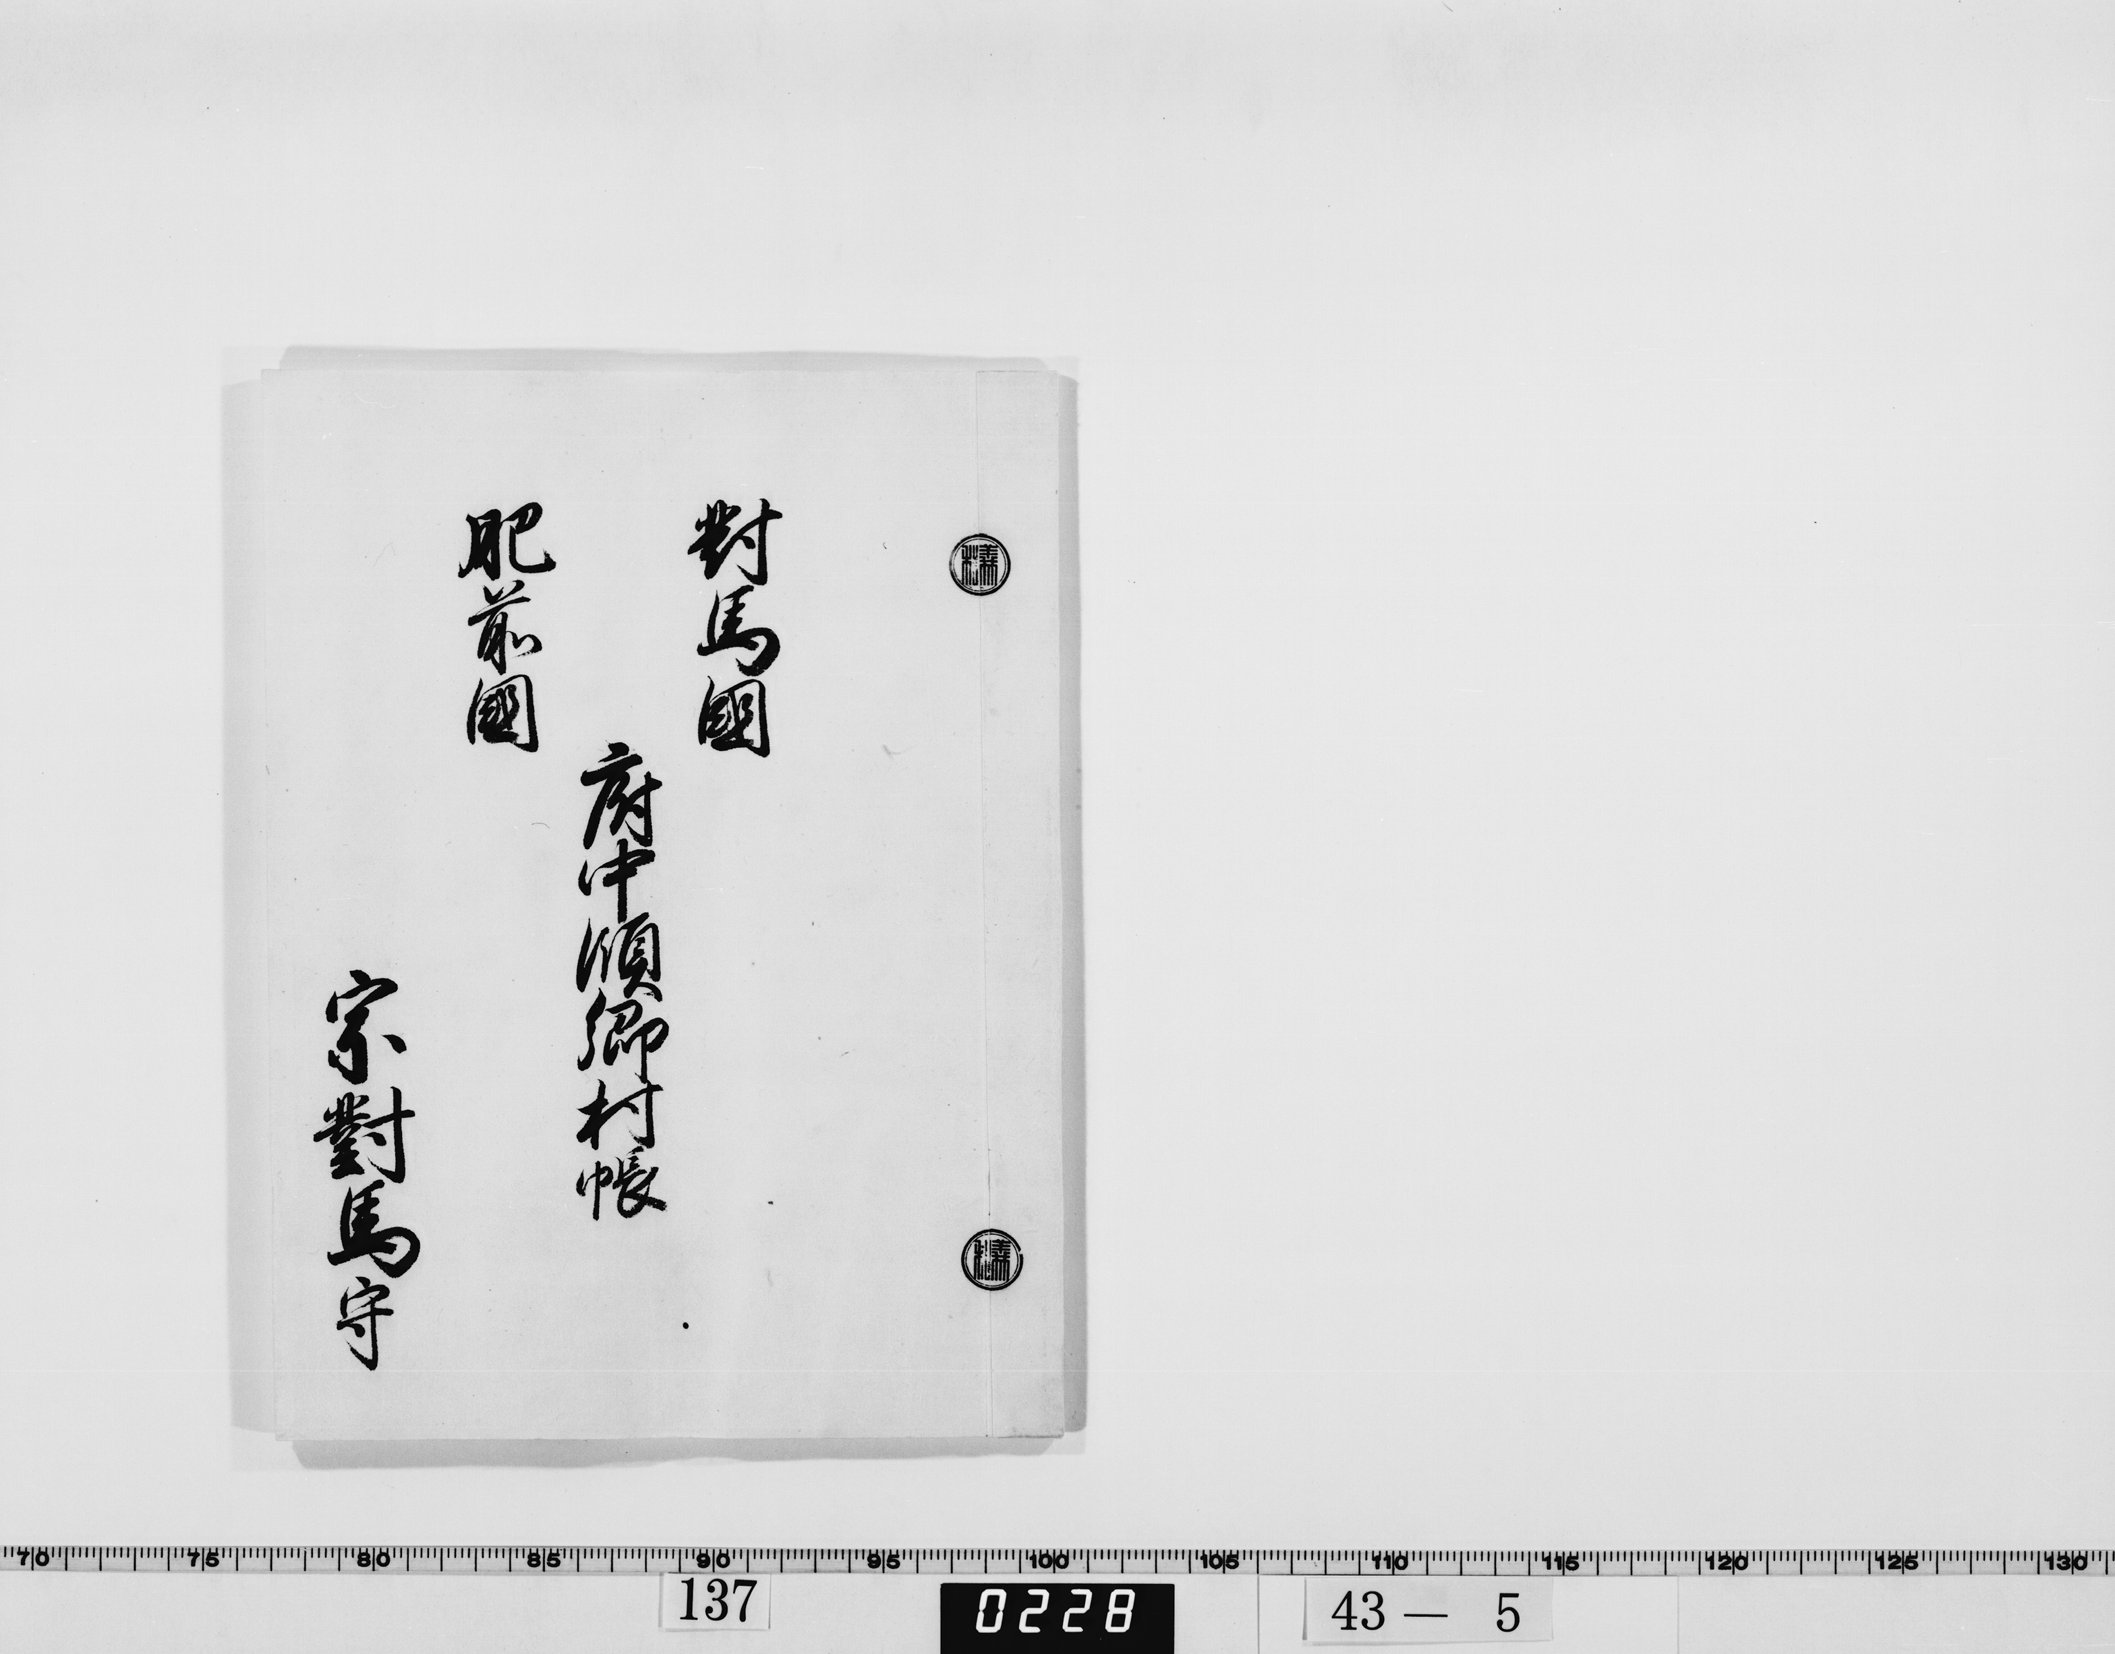 對馬國
府中領鄉村帳
肥前國
宗對馬守
70 75 80 85 90 95 100 105 110 115 120 125 130
137
0228
43－ 5